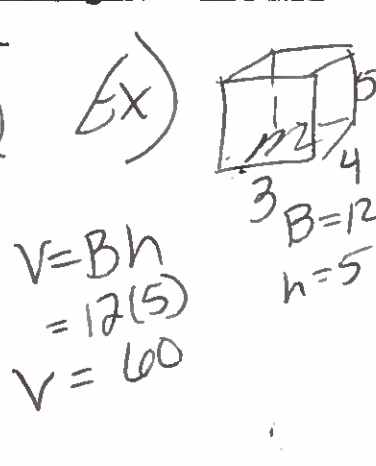 Ex)
5
4
3
B=12
h=5
V=Bh
=12(5)
V=60